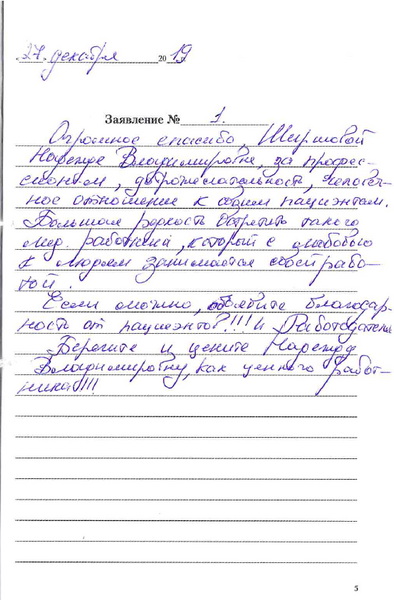 27 декабря 2019
Заявление № 1.
Огромное спасибо, Шерстовой
Надежде Владимировне, за профес-
сионализм, доброжелательность, человеч-
ное отношение к своим пациентам.
Большая редкость встретить такого
мед. работника, который с любовью
к людям занимается своей рабо-
той.
Если можно, объявите благодар-
ность от пациентов!!! и Работодателя
Берегите и цените Надежду
Владимировну, как ценного работ-
ника!!!
5